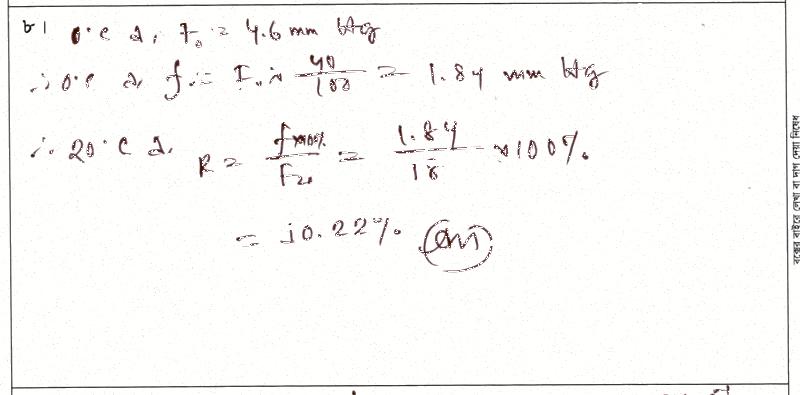 ৮। 0°C এ, F₀ = 4.6 mm Hg
∴ 0°C এ f = F₀ × 40/100 = 1.84 mm Hg
∴ 20°C এ, R = f×100%/F₂₀ = 1.84/18 ×100%
= 10.22% (Ans)
বক্সের বাইরে লেখা বা দাগ দেয়া নিষেধ